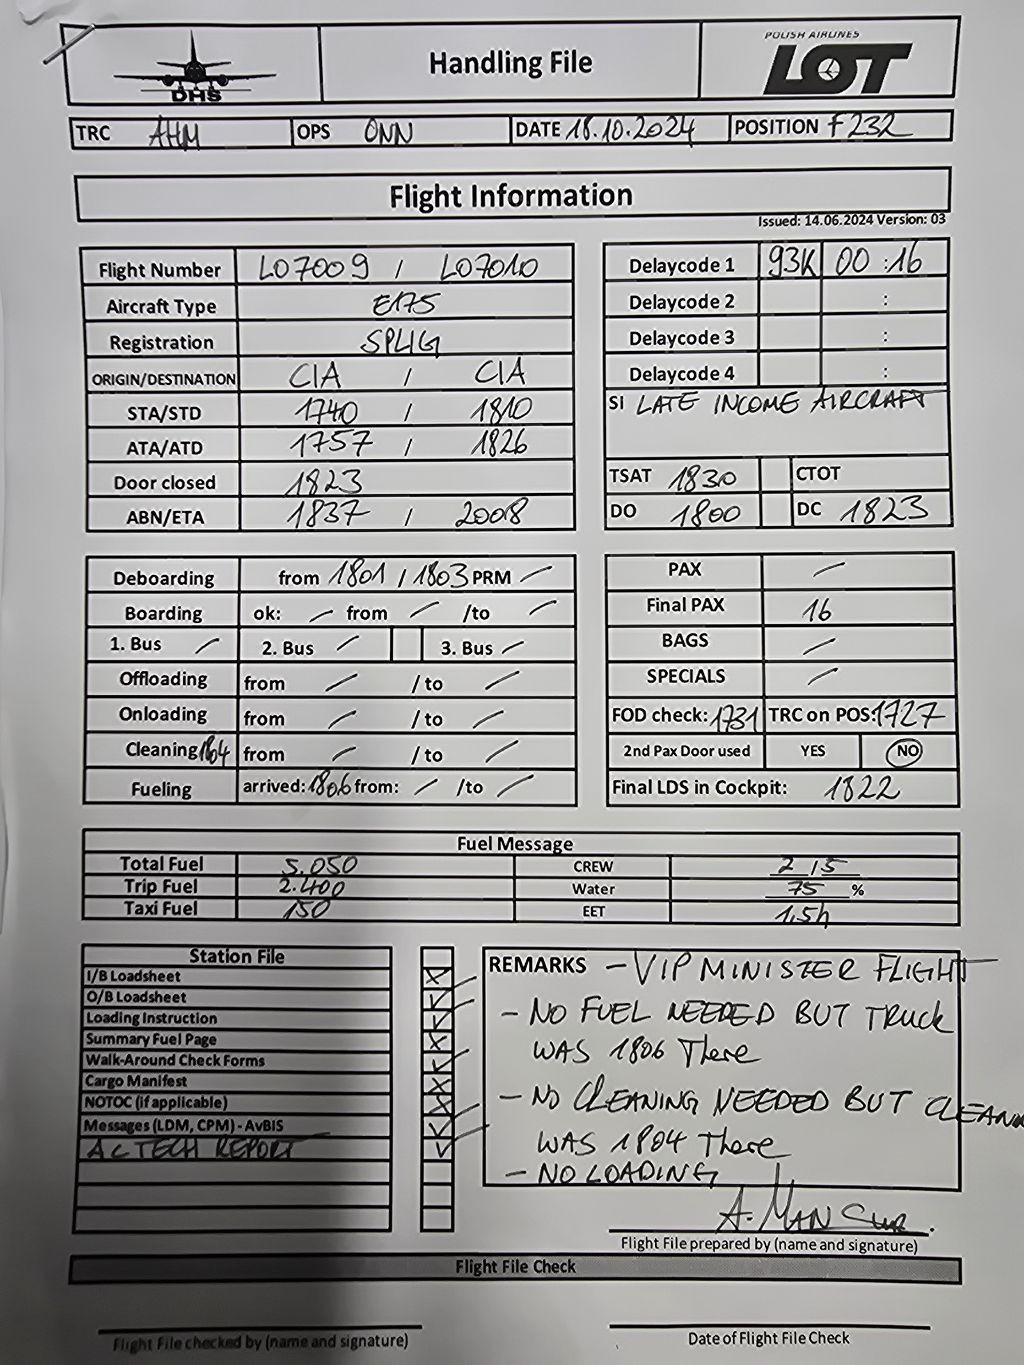 DHS
Handling File
POLISH AIRLINES
LOT
TRC AHM OPS ONN DATE 18.10.2024 POSITION F232
Flight Information
Issued: 14.06.2024 Version: 03
Flight Number LO7009 / LO7010
Aircraft Type E175
Registration SPLIG
ORIGIN/DESTINATION CIA / CIA
STA/STD 1740 / 1810
ATA/ATD 1757 / 1826
Door closed 1823
ABN/ETA 1837 / 2008
Delaycode 1 93K 00 :16
Delaycode 2 :
Delaycode 3 :
Delaycode 4 :
SI LATE INCOME AIRCRAFT
TSAT 1830 CTOT
DO 1800 DC 1823
Deboarding from 1801 / 1803 PRM /
Boarding ok: / from / /to /
1. Bus / 2. Bus / 3. Bus /
Offloading from / / to /
Onloading from / / to /
Cleaning 1804 from / / to /
Fueling arrived: 1806 from: / /to /
PAX /
Final PAX 16
BAGS /
SPECIALS /
FOD check: 1731 TRC on POS: 1727
2nd Pax Door used YES NO
Final LDS in Cockpit: 1822
Fuel Message
Total Fuel 5.050 CREW 2 / 5
Trip Fuel 2.400 Water 75 %
Taxi Fuel 150 EET 1,5h
Station File
I/B Loadsheet
O/B Loadsheet
Loading Instruction
Summary Fuel Page
Walk-Around Check Forms
Cargo Manifest
NOTOC (if applicable)
Messages (LDM, CPM) - AvBIS
AC TECH REPORT
REMARKS - VIP MINISTER FLIGHT
- NO FUEL NEEDED BUT TRUCK
WAS 1806 There
- NO CLEANING NEEDED BUT
WAS 1804 There
- NO LOADING
Flight File prepared by (name and signature)
Flight File Check
Flight File checked by (name and signature)
Date of Flight File Check